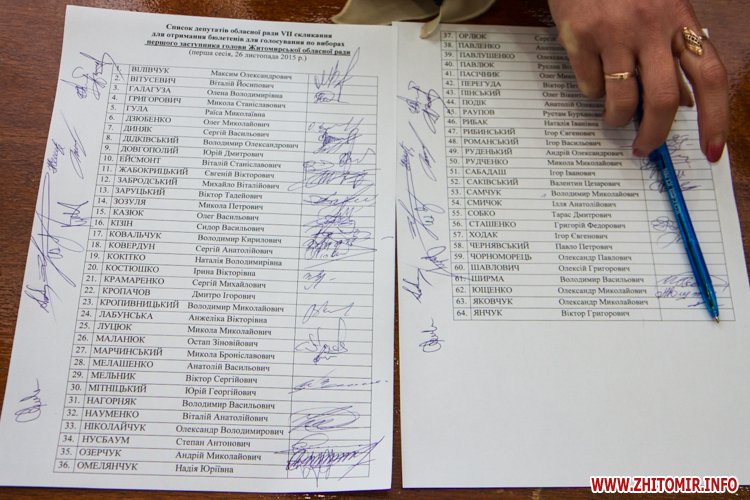 Список депутатів обласної ради VII скликання
для отримання бюлетенів для голосування по виборах
першого заступника голови Житомирської обласної ради
(перша сесія, 26 листопада 2015 р.)
1. ВІЛІВЧУК Максим Олександрович
2. ВІТУСЕВИЧ Віталій Йосипович
3. ГАЛАГУЗА Олена Володимирівна
4. ГРИГОРОВИЧ Микола Станіславович
5. ГУЛА Раїса Миколаївна
6. ДЗЮБЕНКО Олег Миколайович
7. ДИНЯК Сергій Васильович
8. ДІДКІВСЬКИЙ Володимир Олександрович
9. ДОВГОПОЛИЙ Юрій Дмитрович
10. ЕЙСМОНТ Віталій Станіславович
11. ЖАБОКРИЦЬКИЙ Євгеній Вікторович
12. ЗАБРОДСЬКИЙ Михайло Віталійович
13. ЗАРУЦЬКИЙ Віктор Тадейович
14. ЗОЗУЛЯ Микола Петрович
15. КАЗЮК Олег Васильович
16. КІЗІН Сидор Васильович
17. КОВАЛЬЧУК Володимир Кирилович
18. КОВЕРДУН Сергій Анатолійович
19. КОКІТКО Наталія Володимирівна
20. КОСТЮШКО Ірина Вікторівна
21. КРАМАРЕНКО Сергій Михайлович
22. КРОПАЧОВ Дмитро Ігорович
23. КРОПИВНИЦЬКИЙ Володимир Миколайович
24. ЛАБУНСЬКА Анжеліка Вікторівна
25. ЛУЦЮК Микола Миколайович
26. МАЛАНЮК Остап Зіновійович
27. МАРЧИНСЬКИЙ Микола Броніславович
28. МЕЛАШЕНКО Анатолій Васильович
29. МЕЛЬНИК Віктор Сергійович
30. МІТНІЦЬКИЙ Юрій Георгійович
31. НАГОРНЯК Володимир Васильович
32. НАУМЕНКО Віталій Анатолійович
33. НІКОЛАЙЧУК Олександр Володимирович
34. НУСБАУМ Степан Антонович
35. ОЗЕРЧУК Андрій Миколайович
36. ОМЕЛЯНЧУК Надія Юріївна
37. ОРЛЮК Сергій
38. ПАВЛЕНКО Анатолій
39. ПАВЛУШЕНКО Олександр
40. ПАВЛЮК Руслан
41. ПАСІЧНИК Олег Микол
42. ПЕРЕГУДА Віктор Пет
43. ПІНСЬКИЙ Олег Вікент
44. ПОДІК Анатолій Олекс
45. РАУПОВ Рустам Бурхан
46. РИБАК Наталія Іванівна
47. РИБИНСЬКИЙ Ігор Євгенович
48. РОМАНСЬКИЙ Ігор Васильович
49. РУДЕНЬКИЙ Андрій Олександрович
50. РУДЧЕНКО Микола Миколайович
51. САБАДАШ Ігор Іванович
52. САКІВСЬКИЙ Валентин Цезарович
53. САМЧУК Володимир Миколайович
54. СМИЧОК Ілля Анатолійович
55. СОБКО Тарас Дмитрович
56. СТАШЕНКО Григорій Федорович
57. ХОДАК Ігор Євгенович
58. ЧЕРНЯВСЬКИЙ Павло Петрович
59. ЧОРНОМОРЕЦЬ Олександр Павлович
60. ШАВЛОВИЧ Олексій Григорович
61. ШИРМА Володимир Васильович
62. ЮЩЕНКО Олександр Миколайович
63. ЯКОВЧУК Олександр Миколайович
64. ЯНЧУК Віктор Олександрович
WWW.ZHITOMIR.INFO